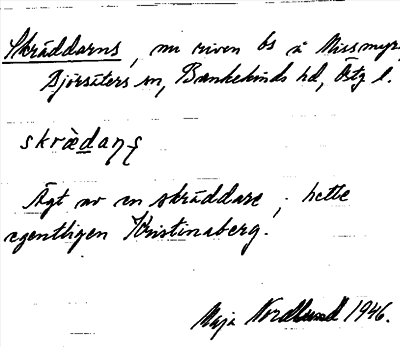 Skräddarns, nu riven bs å Missmyr,
Björsäters sn, Bankekinds hd, Östg l.
skrædaņş
Ägt av en skräddare; hette
egentligen Kristinaberg.
Maja Nordlund 1946.